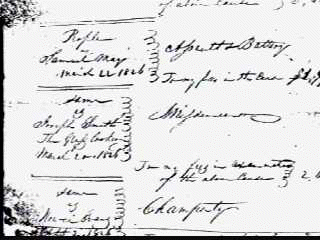 of above Cause
People
vs
Samuel May
March 22 1826
Assault & Battery
To my fees in the Case
same
vs
Joseph Smith
The Glass Looker
March 20, 1826
Misdemeanor
To my fees in examination
of the above Cause 2.
same
vs
Champerty